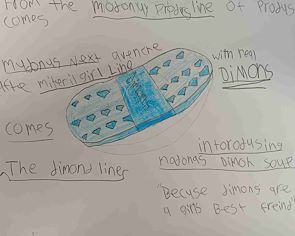 From the madonus Produs line of Produs
comes
madonus next avenchre
afte mikeril girl line
with real
DIMONS
comes
The dimond liner
intorodusing
madonas DIMOK soup
"Becuse dimons are
a girls Best freind"